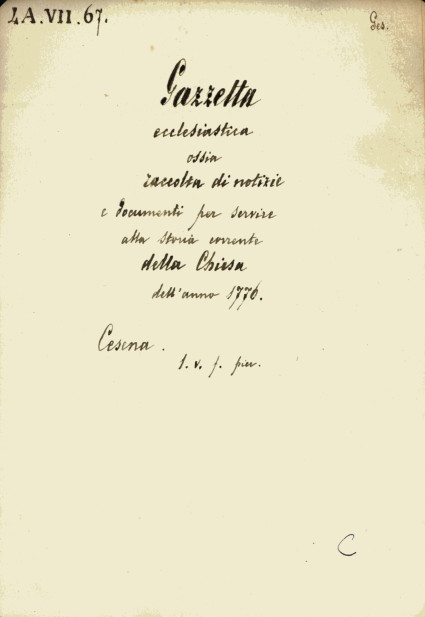 4A.VII.67.
Ges.
Gazzetta
ecclesiastica
ossia
raccolta di notizie
e documenti per servire
alla storia corrente
della Chiesa
dell'anno 1776.
Cesena.
1. v. f. picc.
C